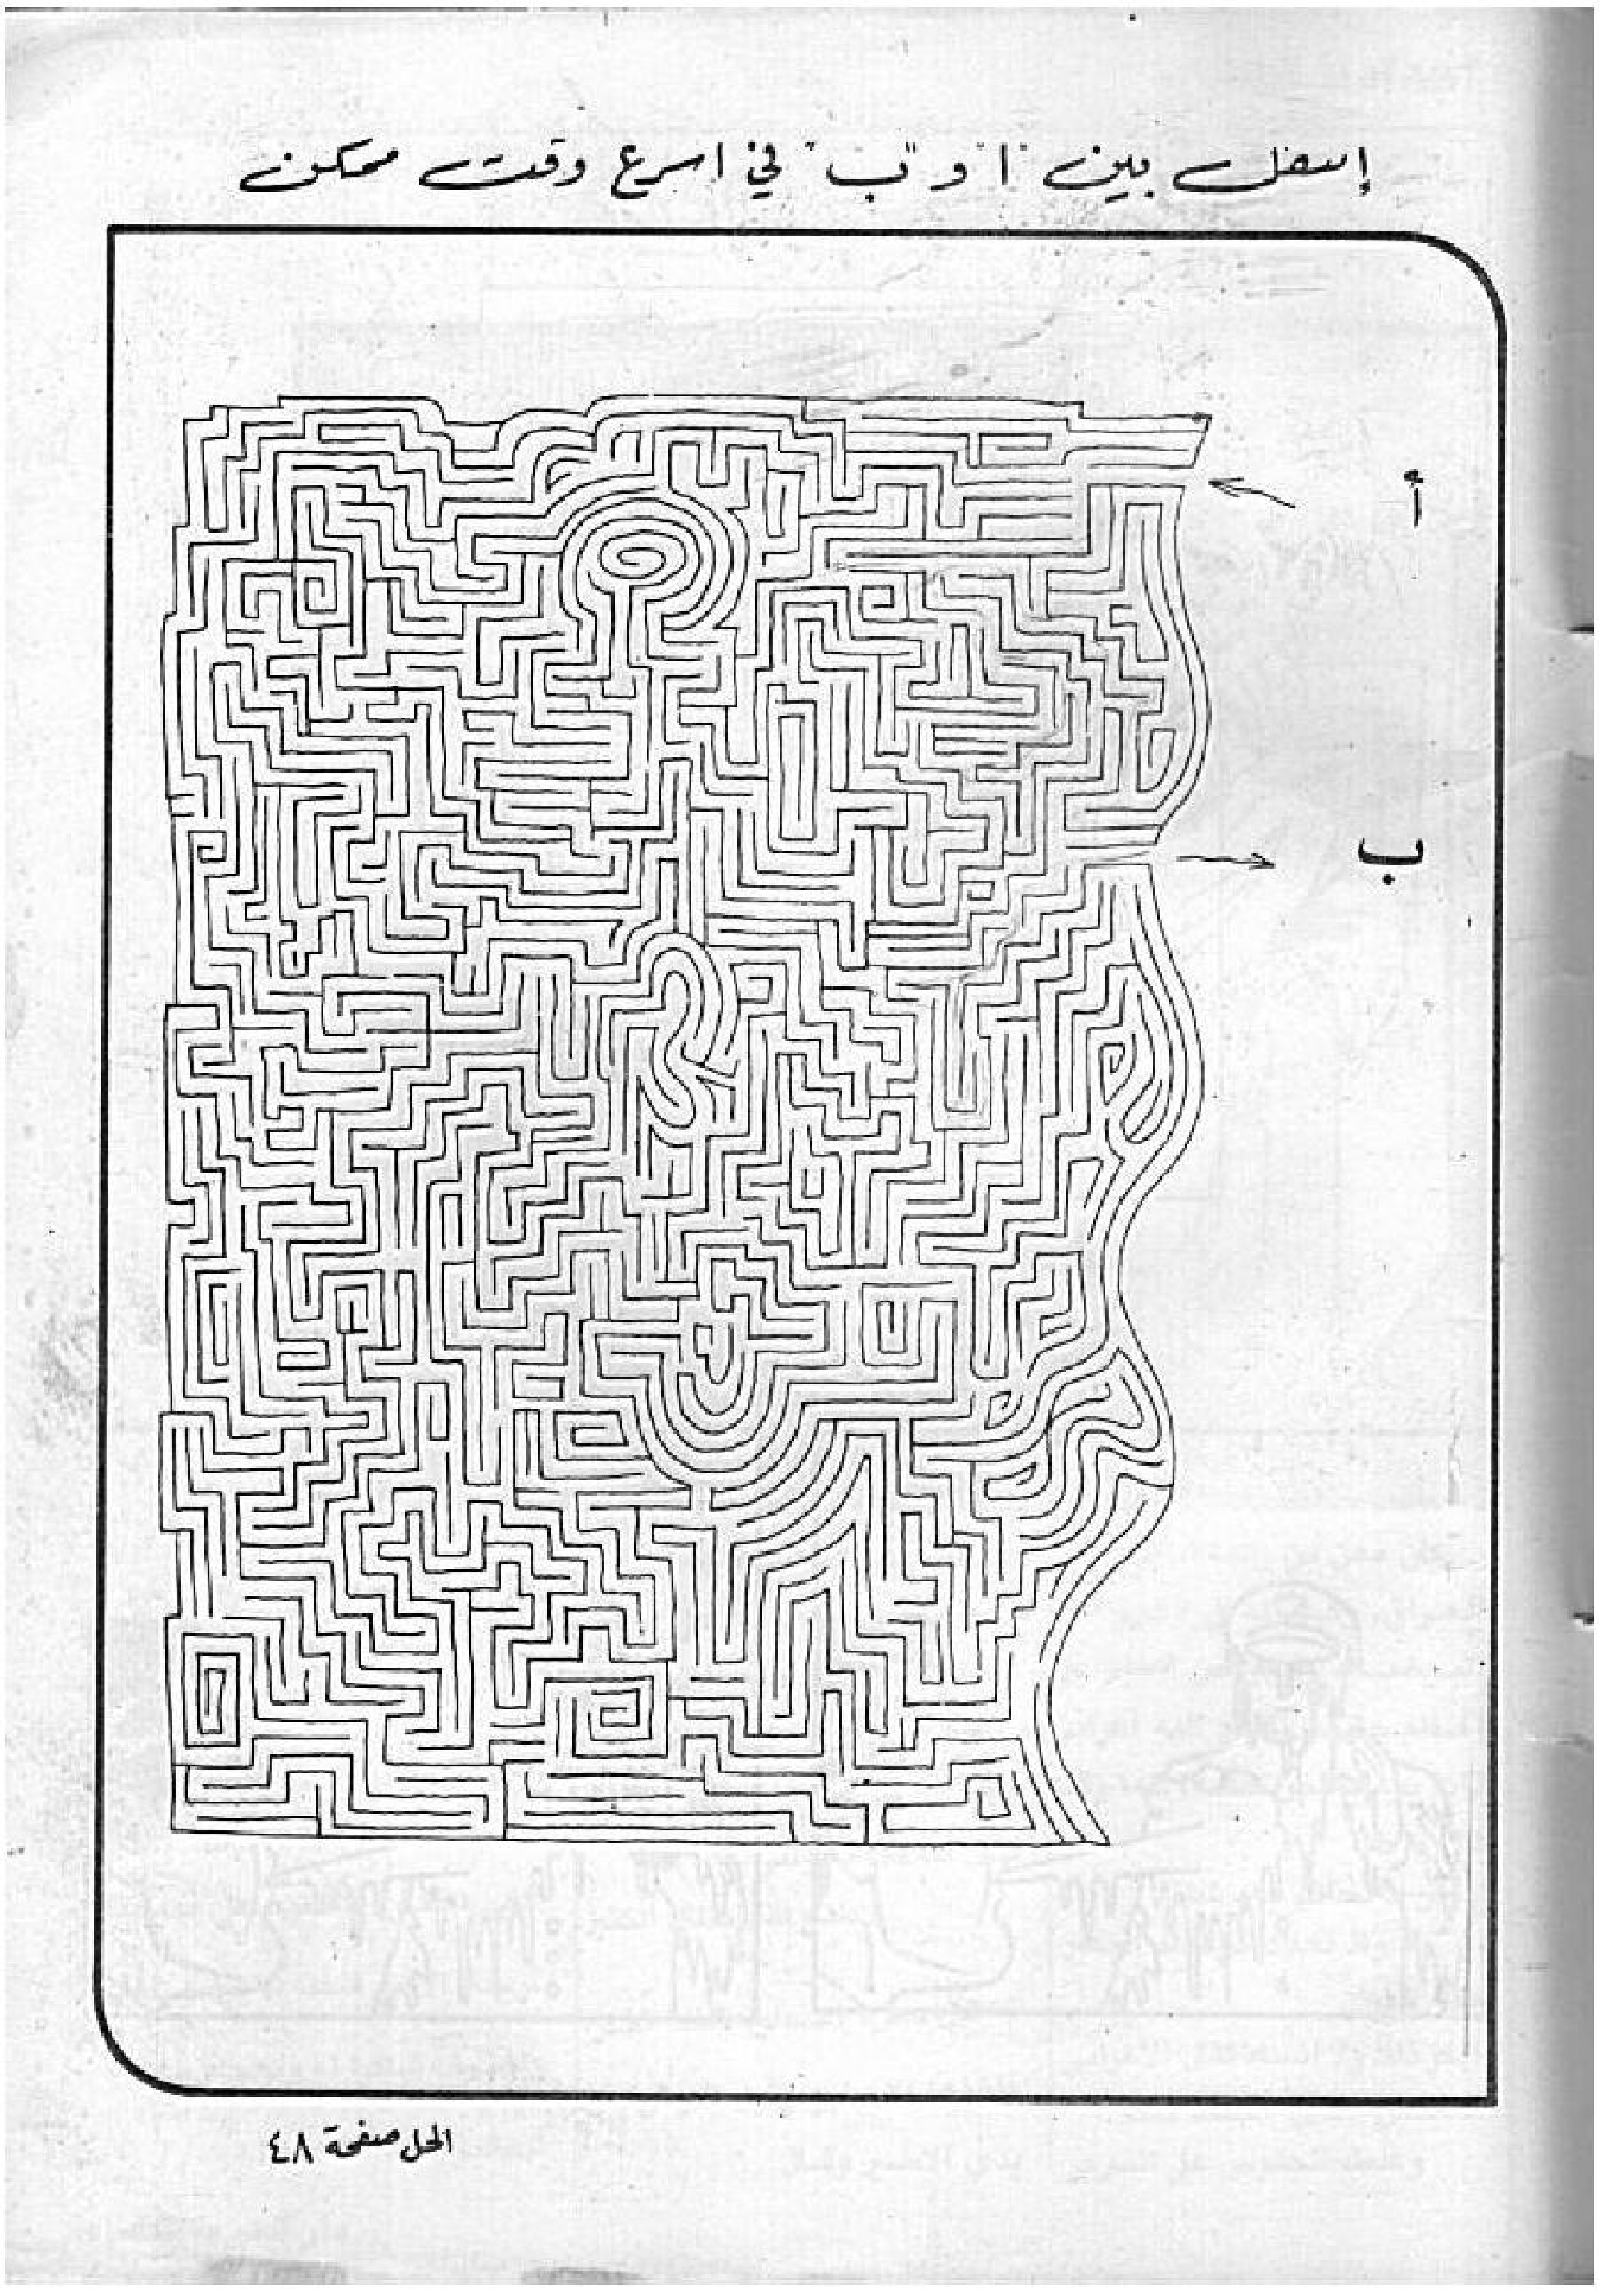 إنتقل بين "ا" و "ب" في اسرع وقت ممكن
أ
ب
الحل صفحة ٤٨